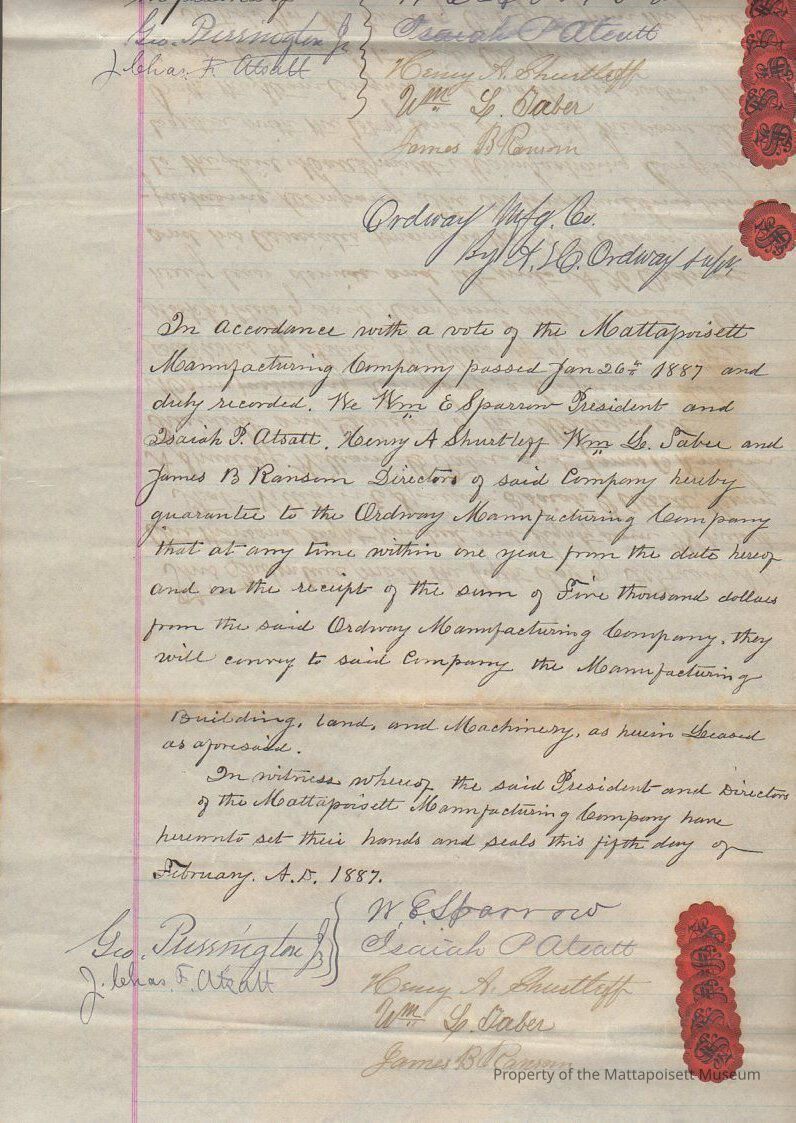 Geo. Purrington Jr
Isaiah P Atsatt
J. Chas. F. Atsatt
Henry A. Shurtleff
Wm L. Taber
James B Ransom
Ordway Mfg. Co.
By H. L. Ordway
In accordance with a vote of the Mattapoisett
Manufacturing Company passed Jan 26th 1887 and
duly recorded. We Wm E Sparrow President and
Isaiah P. Atsatt. Henry A Shurtleff Wm L. Taber and
James B Ransom Directors of said Company hereby
guarantee to the Ordway Manufacturing Company
that at any time within one year from the date hereof
and on the receipt of the sum of Five thousand dollars
from the said Ordway Manufacturing Company, they
will convey to said Company the Manufacturing
Building, land, and Machinery, as herein Leased
as aforesaid.
In witness whereof the said President and Directors
of the Mattapoisett Manufacturing Company have
hereunto set their hands and seals this fifth day of
February. A.D. 1887.
W. E. Sparrow
Geo. Purrington Jr
Isaiah P Atsatt
J. Chas. F. Atsatt
Henry A. Shurtleff
Wm L. Taber
James B Ransom
Property of the Mattapoisett Museum